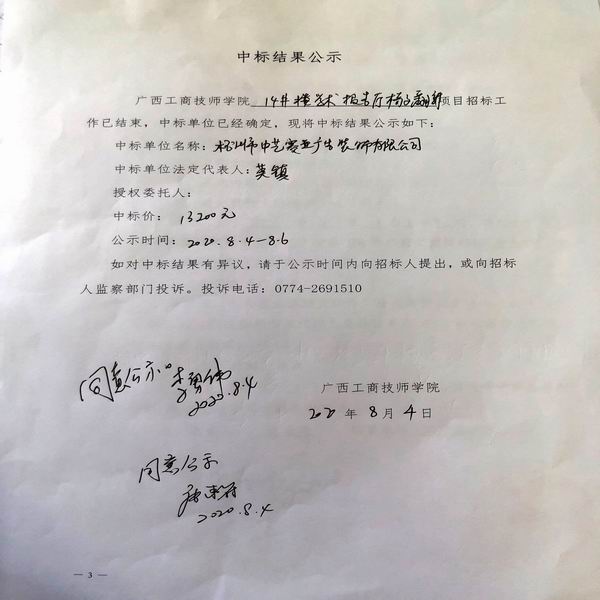 中标结果公示
广西工商技师学院 14井楼学术报告厅椅子翻新项目招标工
作已结束，中标单位已经确定，现将中标结果公示如下：
中标单位名称：梧州市中艺菱亚广告装饰有限公司
中标单位法定代表人：莫镇
授权委托人：
中标价：13200元
公示时间：2020.8.4—8.6
如对中标结果有异议，请于公示时间内向招标人提出，或向招标
人监察部门投诉。投诉电话：0774-2691510
同意公示。
2020.8.4
广西工商技师学院
2020年8月4日
同意公示
2020.8.4
— 3 —